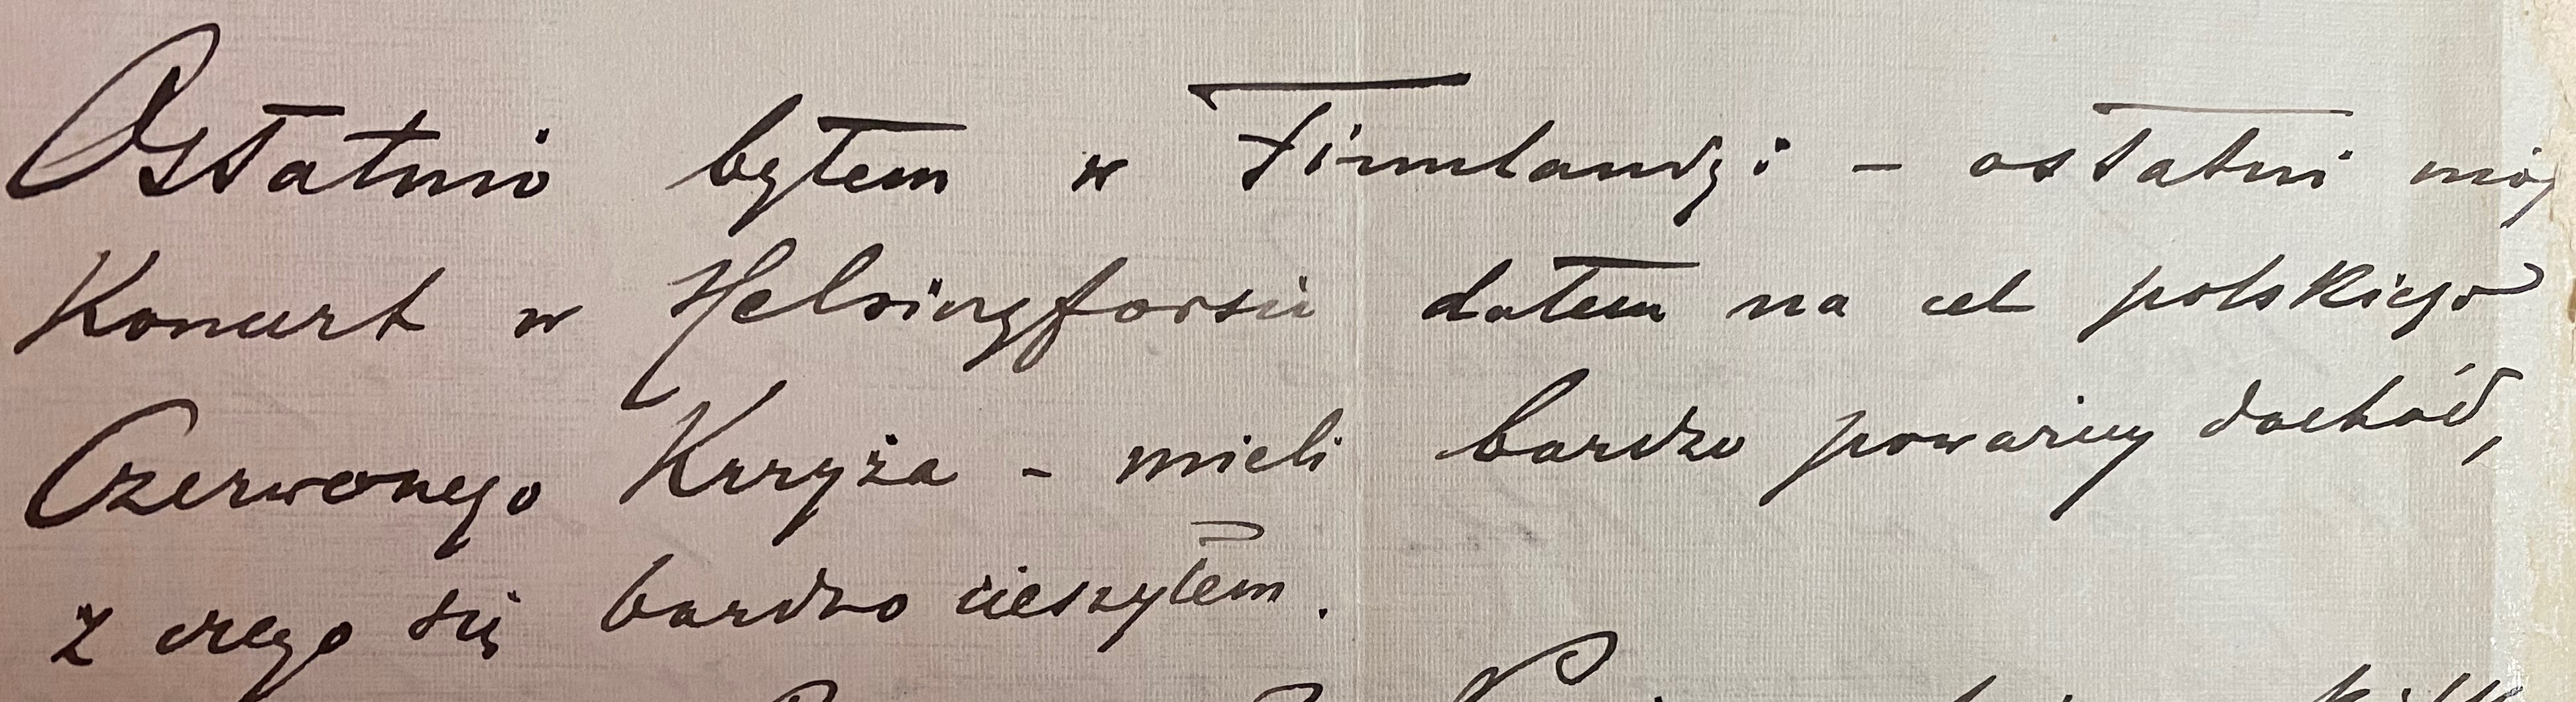 Ostatnio byłem w Finnlandzi - ostatni mój
Koncert w Helsingforsie dałem na cel polskiego
Czerwonego Krzyża - mieli bardzo poważny dochód,
z czego się bardzo cieszyłem.